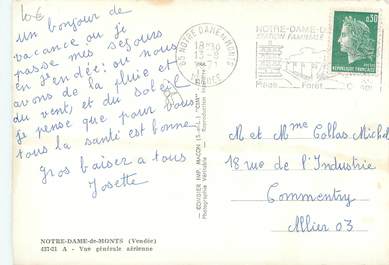 10€
un bonjour de
vacance ou je
passe mes sejours
en Vendée : ou nous
avons de la pluie et
du vent, et du soleil
je pense que pour vous
tous la santé est bonne
Gros baiser a tous
Josette
NOTRE-DAME-de-MONTS (Vendée)
437-21 A - Vue générale aérienne
COMBIER IMP. MACON (S.-&-L.) "CIM"
Photographie Véritable - Reproduction interdite
85 NOTRE DAME DE MONTS
18H30
VENDEE
NOTRE-DAME-D
STATION FAMILIALE
Plage Forêt
0,30
REPUBLIQUE FRANÇAISE
M et Mme Collas Michel
18 rue de l'Industrie
Commentry
Allier 03